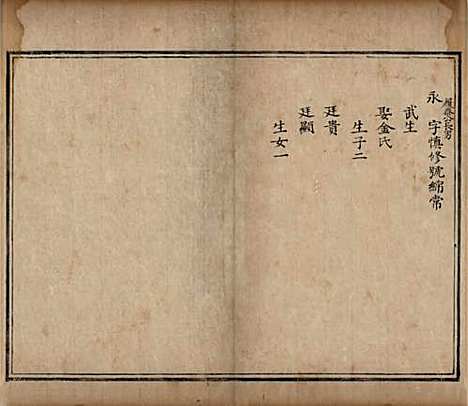 公長男
永 字慎修號綿常
武生
娶金氏
生子二
廷貴
廷顯
生女一